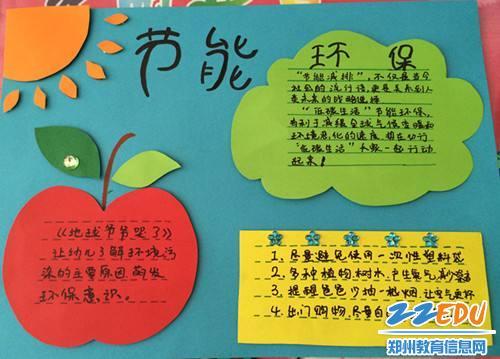 节能
环保
“节能减排”,不仅是当今
社会的流行语,更是关系到人
类未来的战略选择
“低碳生活”节能环保,
有利于减缓全球气候变暖和
环境恶化的速度 势在必行
“低碳生活”大家一起行动
起来!
《地球爷爷哭了》
让幼儿了解环境污
染的主要原因 萌发
环保意识。
1、尽量避免使用一次性塑料袋
2、多种植物、树木,产生氧气,减少雾霾
3、提醒爸爸少抽一根烟,让空气更好
4、出门购物,尽量自
22EDU
郑州教育信息网